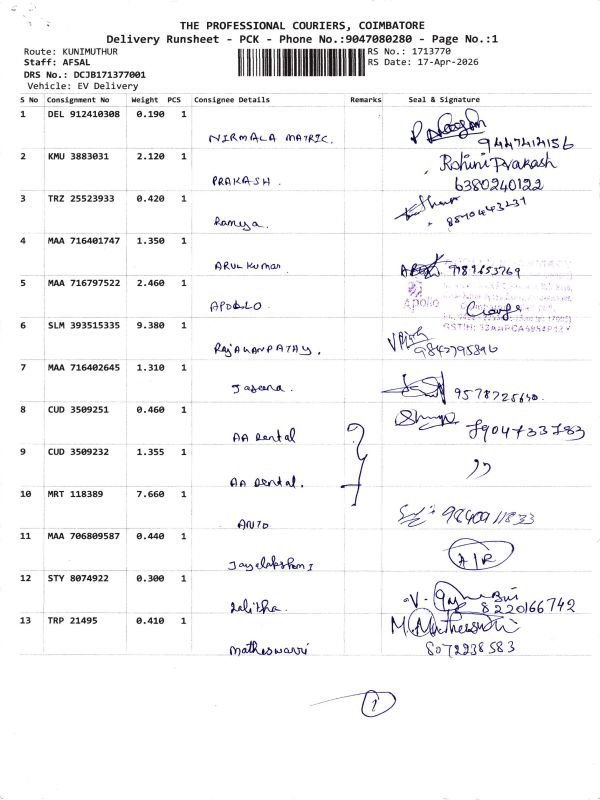 THE PROFESSIONAL COURIERS, COIMBATORE
Delivery Runsheet - PCK - Phone No.:9047080280 - Page No.:1
Route: KUNIMUTHUR
Staff: AFSAL
DRS No.: DCJB171377001
Vehicle: EV Delivery
RS No.: 1713770
RS Date: 17-Apr-2026
S No Consignment No Weight PCS Consignee Details Remarks Seal & Signature
1 DEL 912410308 0.190 1
NIRMALA MATRIC. 9447414156
2 KMU 3883031 2.120 1 Rohini Prakash
PRAKASH. 6380240122
3 TRZ 25523933 0.420 1
Ramya.
4 MAA 716401747 1.350 1
ARUL Kumar
5 MAA 716797522 2.460 1
APOLLO Apollo
6 SLM 393515335 9.380 1
9842795896
7 MAA 716402645 1.310 1
Jaseena. 9578725640.
8 CUD 3509251 0.460 1
AA Dental 8904733783
9 CUD 3509232 1.355 1 ))
AA Dental.
10 MRT 118389 7.660 1
ANTO
11 MAA 706809587 0.440 1
Jayelakshmi A/R
12 STY 8074922 0.300 1
Lalitha. 8220166742
13 TRP 21495 0.410 1
Matheswarri 8072238583
1